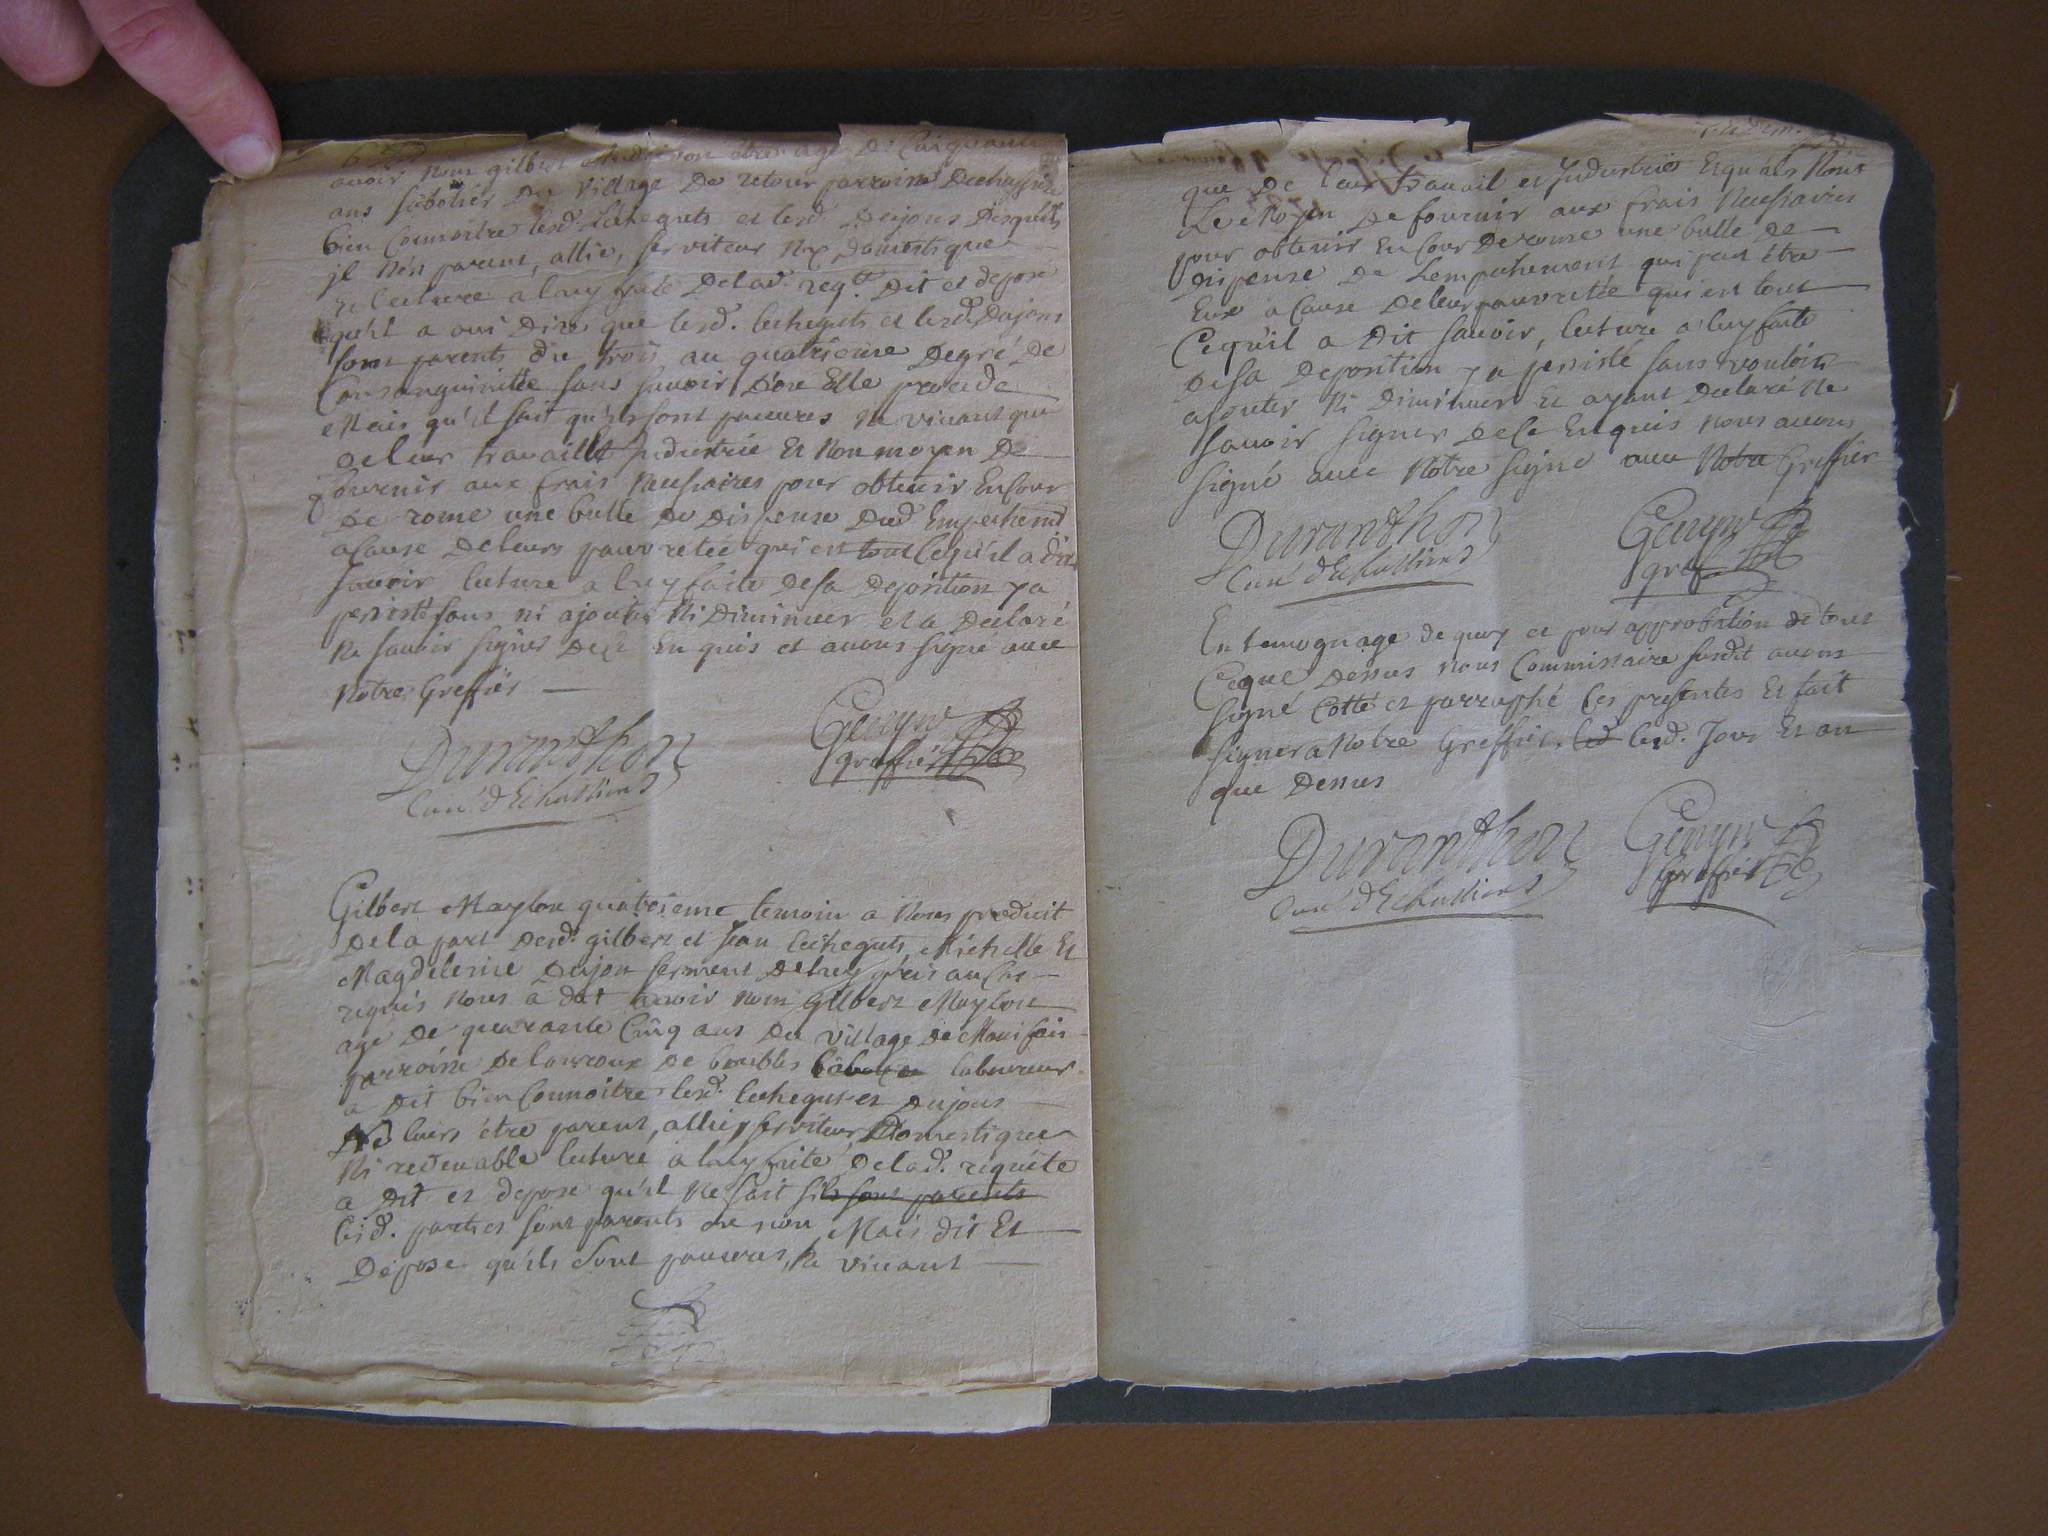 avoir nom gilbert être agé De Cinquante
ans sabotier Du village De retour parroise Dechassiere
bien Connoitre lesd. Lecheguts et lesd. Dujons Desquels
jl n'est parent, allié, serviteur Ny Domestique
Et lecture a luy faite Delad. reqte. Dit et depose
qu'il a oui Dire que lesd. lecheguts et lesd. Dujons
sont parents du trois au quatrieme Degré De
Consanguinitée sans savoir D'ou Elle procede
Mais qu'il sait qu'ils sont pauvres ne vivant que
De leur travaille Industrie Et Non moyen De
fournir aux frais Necessaires pour obtenir En Cour
De rome une bulle De Dispense Dud. Empechemt
a Cause De leurs pauvretée qui est tout Cequ'il a dit
savoir lecture a luy faite De sa Deposition y a
persisté sans ni ajouter Ni Diminuer et a Declaré
Ne savoir signer De Ce En quis et avons signé avec
Notre Greffier
Duranthon
Curé d'Echassieres
Genyn
greffier
Gilbert Maylon quatrieme temoin a Nous produit
De la part Desd. gilbert et Jean lecheguts, Michelle Et
Magdeleine Dujon serment De luy pris au Cas
requis Nous à dit avoir nom gilbert Maylon
agé De quarante Cinq ans Du village De Mauifais
parroise De louroux De boubles labour laboureur
a Dit bien Connoitre lesd. lecheguts et Dujons
Ne leurs être parent, allié, serviteur, Domestique
Ni redevable lecture a luy faite Delad. requête
a Dit et depose qu'il Ne sait s'ils sont parents
lesd. parties sont parents ou non Mais dit Et
Depose qu'ils sont pauvres, Ne vivant
que De leur travail et Industrie Et qu'ils N'ont
Le Moyen De fournir aux frais Necessaires
pour obtenir En Cour De rome une bulle De
Dispense De Lempechement qui peut être
Eux a Cause De leur pauvretée qui est tout
Cequ'il a Dit savoir, lecture a luy faite
De sa Deposition y a persisté sans vouloir
ajouter Ni Diminuer Et ayant Declaré Ne
savoir signer De Ce Enquis Nous avons
signé avec Notre signe avec Notre Greffier
Duranthon
Curé d'Echassieres
Genyn
gref
En temognage de quoy et pour approbation de tout
Ceque Dessus nous Commissaire susdit avons
signé Cotté et parraphé Ces presentes Et fait
signer a Notre Greffier led lesd. Jour Et an
que Dessus
Duranthon
Curé d'Echassieres
Genyn
Greffier